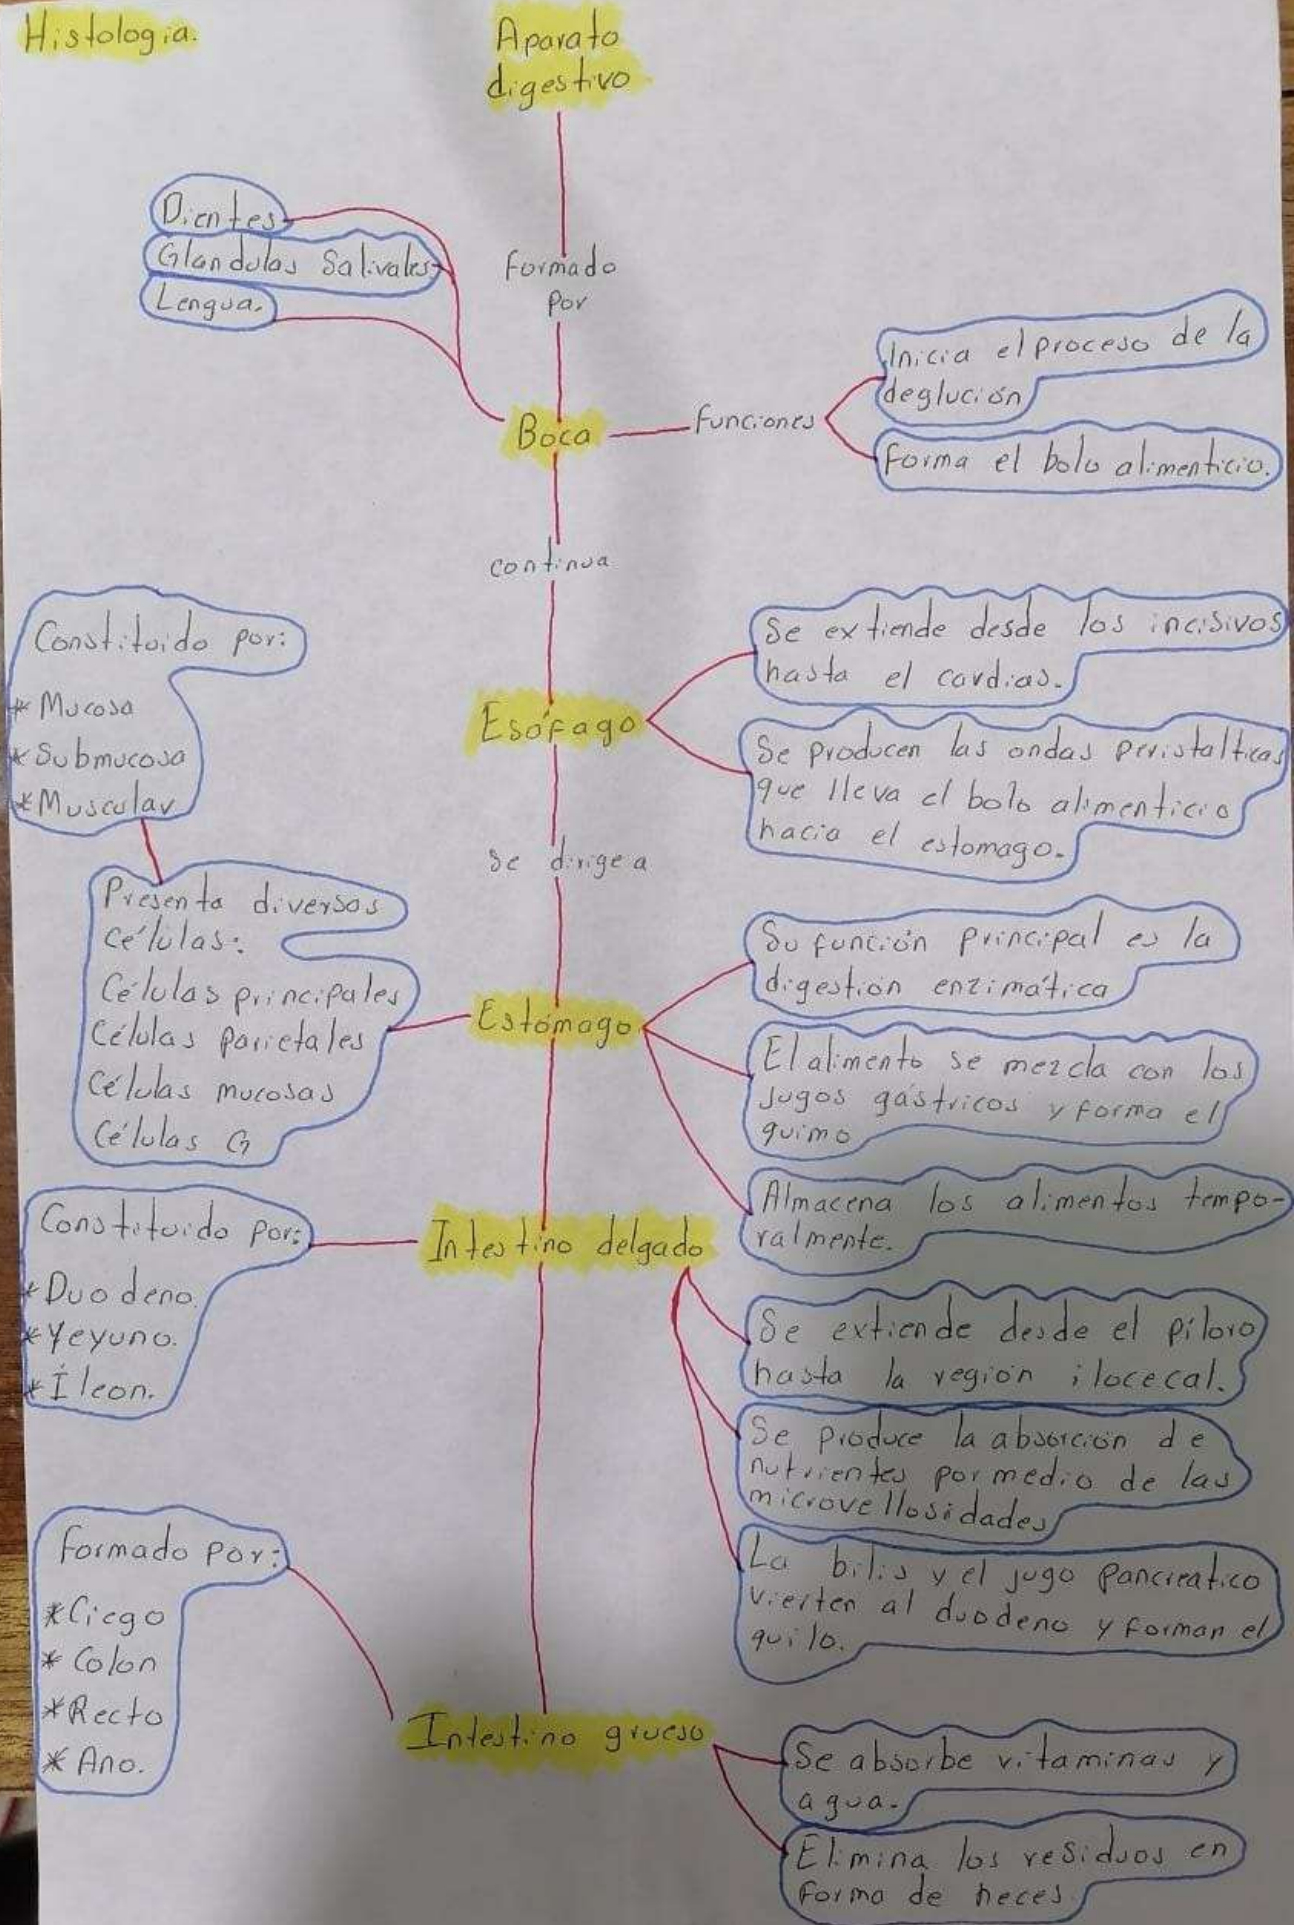 Histologia.
Aparato
digestivo
Formado
por
Dientes
Glandulas Salivales
Lengua.
Boca
funciones
Inicia el proceso de la
deglución
Forma el bolo alimenticio.
continua
Esófago
Se extiende desde los incisivos
hasta el cardias.
Se producen las ondas peristalticas
que lleva el bolo alimenticio
hacia el estomago.
Se dirige a
Constituido por:
* Mucosa
* Submucosa
* Muscular
Presenta diversos
células:
Células principales
Células parietales
Células mucosas
Células G
Estómago
Su función principal es la
digestión enzimática
El alimento se mezcla con los
jugos gástricos y forma el
quimo
Almacena los alimentos tempo-
ralmente.
Constituido por:
* Duodeno.
* Yeyuno.
* Íleon.
Intestino delgado
Se extiende desde el píloro
hasta la región ilocecal.
Se produce la absorción de
nutrientes por medio de las
microvellosidades
La bilis y el jugo pancreatico
vierten al duodeno y forman el
quilo.
Formado por:
* Ciego
* Colon
* Recto
* Ano.
Intestino grueso
Se absorbe vitaminas y
agua.
Elimina los residuos en
forma de heces